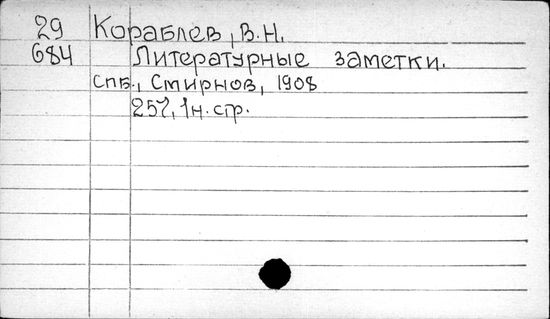 29 Кораблев, В.Н.
684 Литературные заметки.
СПБ., Смирнов, 1908
257, 1н. стр.